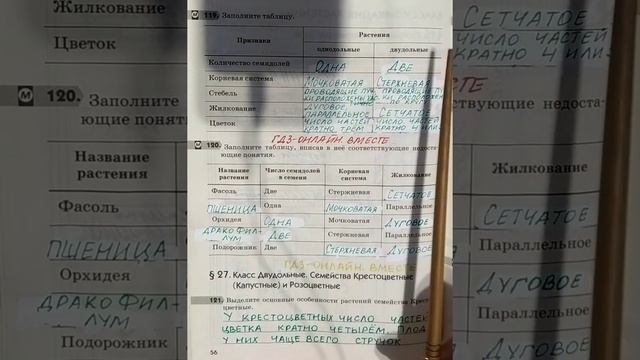 119. Заполните таблицу.
Признаки
Растения
однодольные
двудольные
Количество семядолей
ОДНА
ДВЕ
Корневая система
МОЧКОВАТАЯ
СТЕРЖНЕВАЯ
Стебель
Жилкование
ДУГОВОЕ,
ПАРАЛЛЕЛЬНОЕ
СЕТЧАТОЕ
Цветок
ЧИСЛО ЧАСТЕЙ
КРАТНО ТРЁМ
ЧИСЛО ЧАСТЕЙ
КРАТНО 4 ИЛИ-
ГДЗ-ОНЛАЙН ВМЕСТЕ
120. Заполните таблицу, вписав в неё соответствующие недоста-
ющие понятия.
Название
растения
Число семядолей
в семени
Корневая
система
Жилкование
Фасоль
Две
Стержневая
СЕТЧАТОЕ
ПШЕНИЦА
Одна
МОЧКОВАТАЯ
Параллельное
Орхидея
ОДНА
Мочковатая
ДУГОВОЕ
ДРАКОФИЛ-
ЛУМ
ДВЕ
Стержневая
Параллельное
Подорожник
Две
СТЕРЖНЕВАЯ
ДУГОВОЕ
ГДЗ-ОНЛАЙН ВМЕСТЕ
§ 27. Класс Двудольные. Семейства Крестоцветные
(Капустные) и Розоцветные
121. Выделите основные особенности растений семейства Крест
цветные.
У КРЕСТОЦВЕТНЫХ ЧИСЛО ЧАСТЕЙ
ЦВЕТКА КРАТНО ЧЕТЫРЁМ. ПЛОД
У НИХ ЧАЩЕ ВСЕГО СТРУЧОК
56
Жилкование
Цветок
120. Заполните
ющие понятия.
Название
растения
Фасоль
ПШЕНИЦА
Орхидея
ДРАКОФИЛ-
ЛУМ
Подорожник
СЕТЧАТОЕ
ЧИСЛО ЧАСТЕЙ
КРАТНО 4 ИЛИ-
ЕСТЕ
ствующие недоста-
Жилкование
СЕТЧАТОЕ
Параллельное
ДУГОВОЕ
Параллельное
ДУГОВОЕ